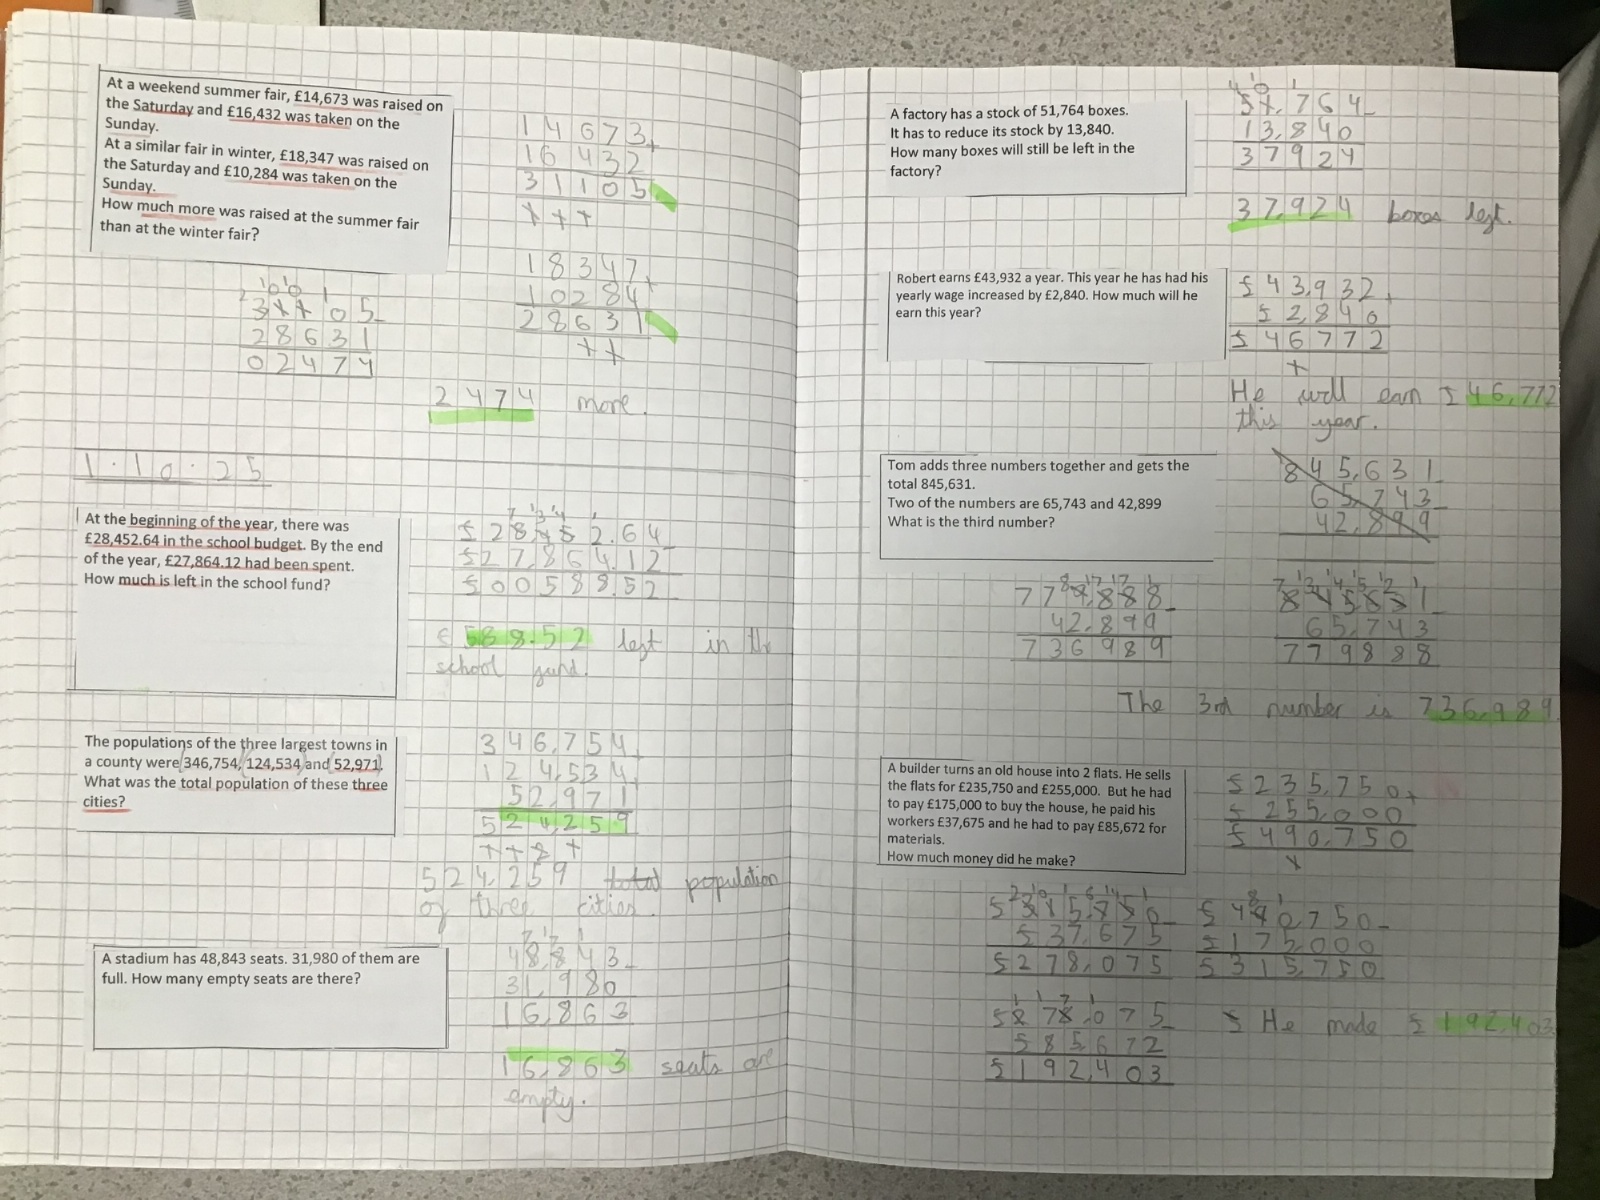 At a weekend summer fair, £14,673 was raised on
the Saturday and £16,432 was taken on the
Sunday.
At a similar fair in winter, £18,347 was raised on
the Saturday and £10,284 was taken on the
Sunday.
How much more was raised at the summer fair
than at the winter fair?
14673+
16432
31105
18347+
10284
28631
31105-
28631
02474
2474 more.
1.10.25
At the beginning of the year, there was
£28,452.64 in the school budget. By the end
of the year, £27,864.12 had been spent.
How much is left in the school fund?
£28,452.64-
£27,864.12
£00588.52
£588.52 left in the
school fund.
The populations of the three largest towns in
a county were 346,754, 124,534 and 52,971.
What was the total population of these three
cities?
346,754+
124,534
52,971
524,259
524,259 total population
of three cities.
A stadium has 48,843 seats. 31,980 of them are
full. How many empty seats are there?
48,843-
31,980
16,863
16,863 seats are
empty.
A factory has a stock of 51,764 boxes.
It has to reduce its stock by 13,840.
How many boxes will still be left in the
factory?
51,764-
13,840
37924
37,924 boxes left.
Robert earns £43,932 a year. This year he has had his
yearly wage increased by £2,840. How much will he
earn this year?
£43,932+
£2,840
£46772
He will earn £46,772
this year.
Tom adds three numbers together and gets the
total 845,631.
Two of the numbers are 65,743 and 42,899
What is the third number?
845,631
65,743-
42,899
845,631-
65,743
779888
779,888-
42,899
736989
The 3rd number is 736,989.
A builder turns an old house into 2 flats. He sells
the flats for £235,750 and £255,000. But he had
to pay £175,000 to buy the house, he paid his
workers £37,675 and he had to pay £85,672 for
materials.
How much money did he make?
£235,750+
£255,000
£490,750
£490750-
£175000
£315,750
£315,750-
£37,675
£278,075
£278,075-
£85,672
£192,403
He made £192,403